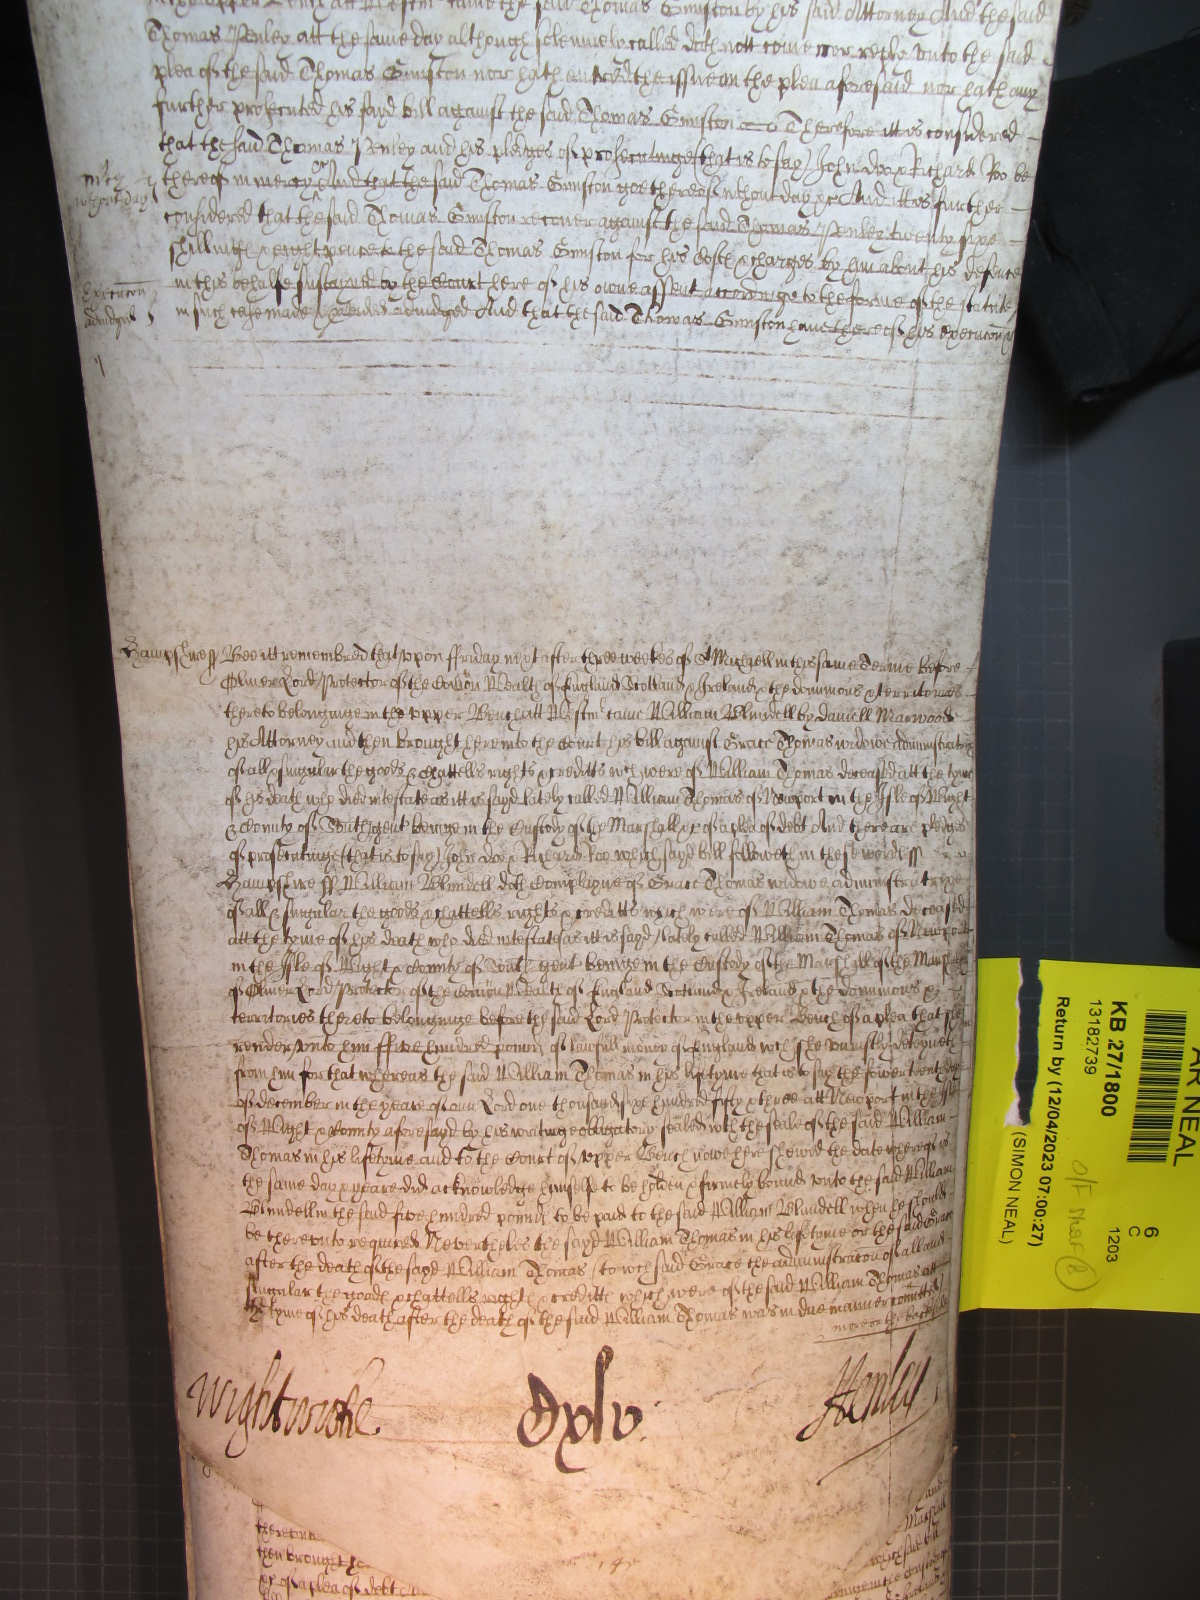 the upper Bench att Westm came the said Thomas Gunston by his said Attorney And the said
Thomas Penley att the same day although solemnely called doth nott come nor reply vnto the said
plea of the said Thomas Gunston nor hath entred the issue on the plea aforesaid nor hath any
further prosecuted his sayd bill against the said Thomas Gunston Therefore itt is considered
that the said Thomas Penley and his pledges of prosecutinge (that is to say) John doo & Richard Roo be
thereof in mercy &c And that the said Thomas Gunston goe thereof without day &c And itt is further
mcy
without day
considered that the said Thomas Gunston recouer against the said Thomas Penley twenty five
shillings & eight pence to the said Thomas Gunston for his Costs & charges by him about his defence
in this behalfe sustained by the Court here of his owne assent accordinge to the forme of the statute
in such case made & prouided adiudged And that the said Thomas Gunston haue thereof his execucon &c
Execucon
adiudged
Hampshire ss Bee itt remembred that vpon ffriday next after three weekes of St Michaell in this same Terme before
Oliver Lord Protector of the Comon Wealth of England Scotland & Ireland & the dominions & territories
thereto belonginge in the vpper Bench att Westm came William Blundell by Daniell Marwoode
his Attorney and then brought here into the Court his bill against Grace Thomas widowe administratrix
of all & singular the goods & chattells rights & creditts wch were of William Thomas deceased att the tyme
of his death who died intestate as itt is sayd lately called William Thomas of Newport in the Isle of Wight
& County of Southt gent beinge in the Custody of the Marshall &c of a plea of debt And there are pledges
of prosecutinge (that is to say) John doo & Richard Roo which sayd bill followeth in these words ss
Hampshire ss William Blundell doth Complayne of Grace Thomas widowe administratrixe
of all & singular the goods & chattells rights & creditts which were of William Thomas deceased
att the tyme of his death who died intestate (as itt is sayd) lately called William Thomas of Newport
in the Isle of Wight & County of Southt gent beinge in the Custody of the Marshall of the Marshalsy
of Oliver Lord Protector of the Comon Wealth of England Scotland & Ireland & the dominions &
territories thereto belonginge before the said Lord Protector in the vpper Bench of a plea that she
render vnto him ffive hundred pounds of lawfull money of England wch she vniustly deteyneth
from him for that whereas the said William Thomas in his lifetyme that is to say the day
of december in the yeare of our Lord one thousand six hundred fifty & three att Newport in the Isle
of Wight & County aforesayd by his writinge obligatory sealed with the seale of the said William
Thomas in his lifetyme and to the Court of vpper Bench nowe here shewed the date whereof is
the same day & yeare did acknowledge himselfe to be holden & firmely bound vnto the said William
Blundell in the said five hundred pounds to be paid to the said William Blundell when he should
be therevnto required Neverthelesse the sayd William Thomas in his lifetyme or the said Grace
after the death of the sayd William Thomas (to wch said Grace the administracon of all and
singular the goods & chattells rights & creditts which were of the said William Thomas att
the tyme of his death after the death of the said William Thomas was in due manner comitted)
more on the backside
Wightwicke
Oxlv:
Henley
AR NEAL
KB 27/1800
13182739
6
C
1203
Return by (12/04/2023 07:00:27)
(SIMON NEAL)
O/F
then brought
&c of a plea of debt
and